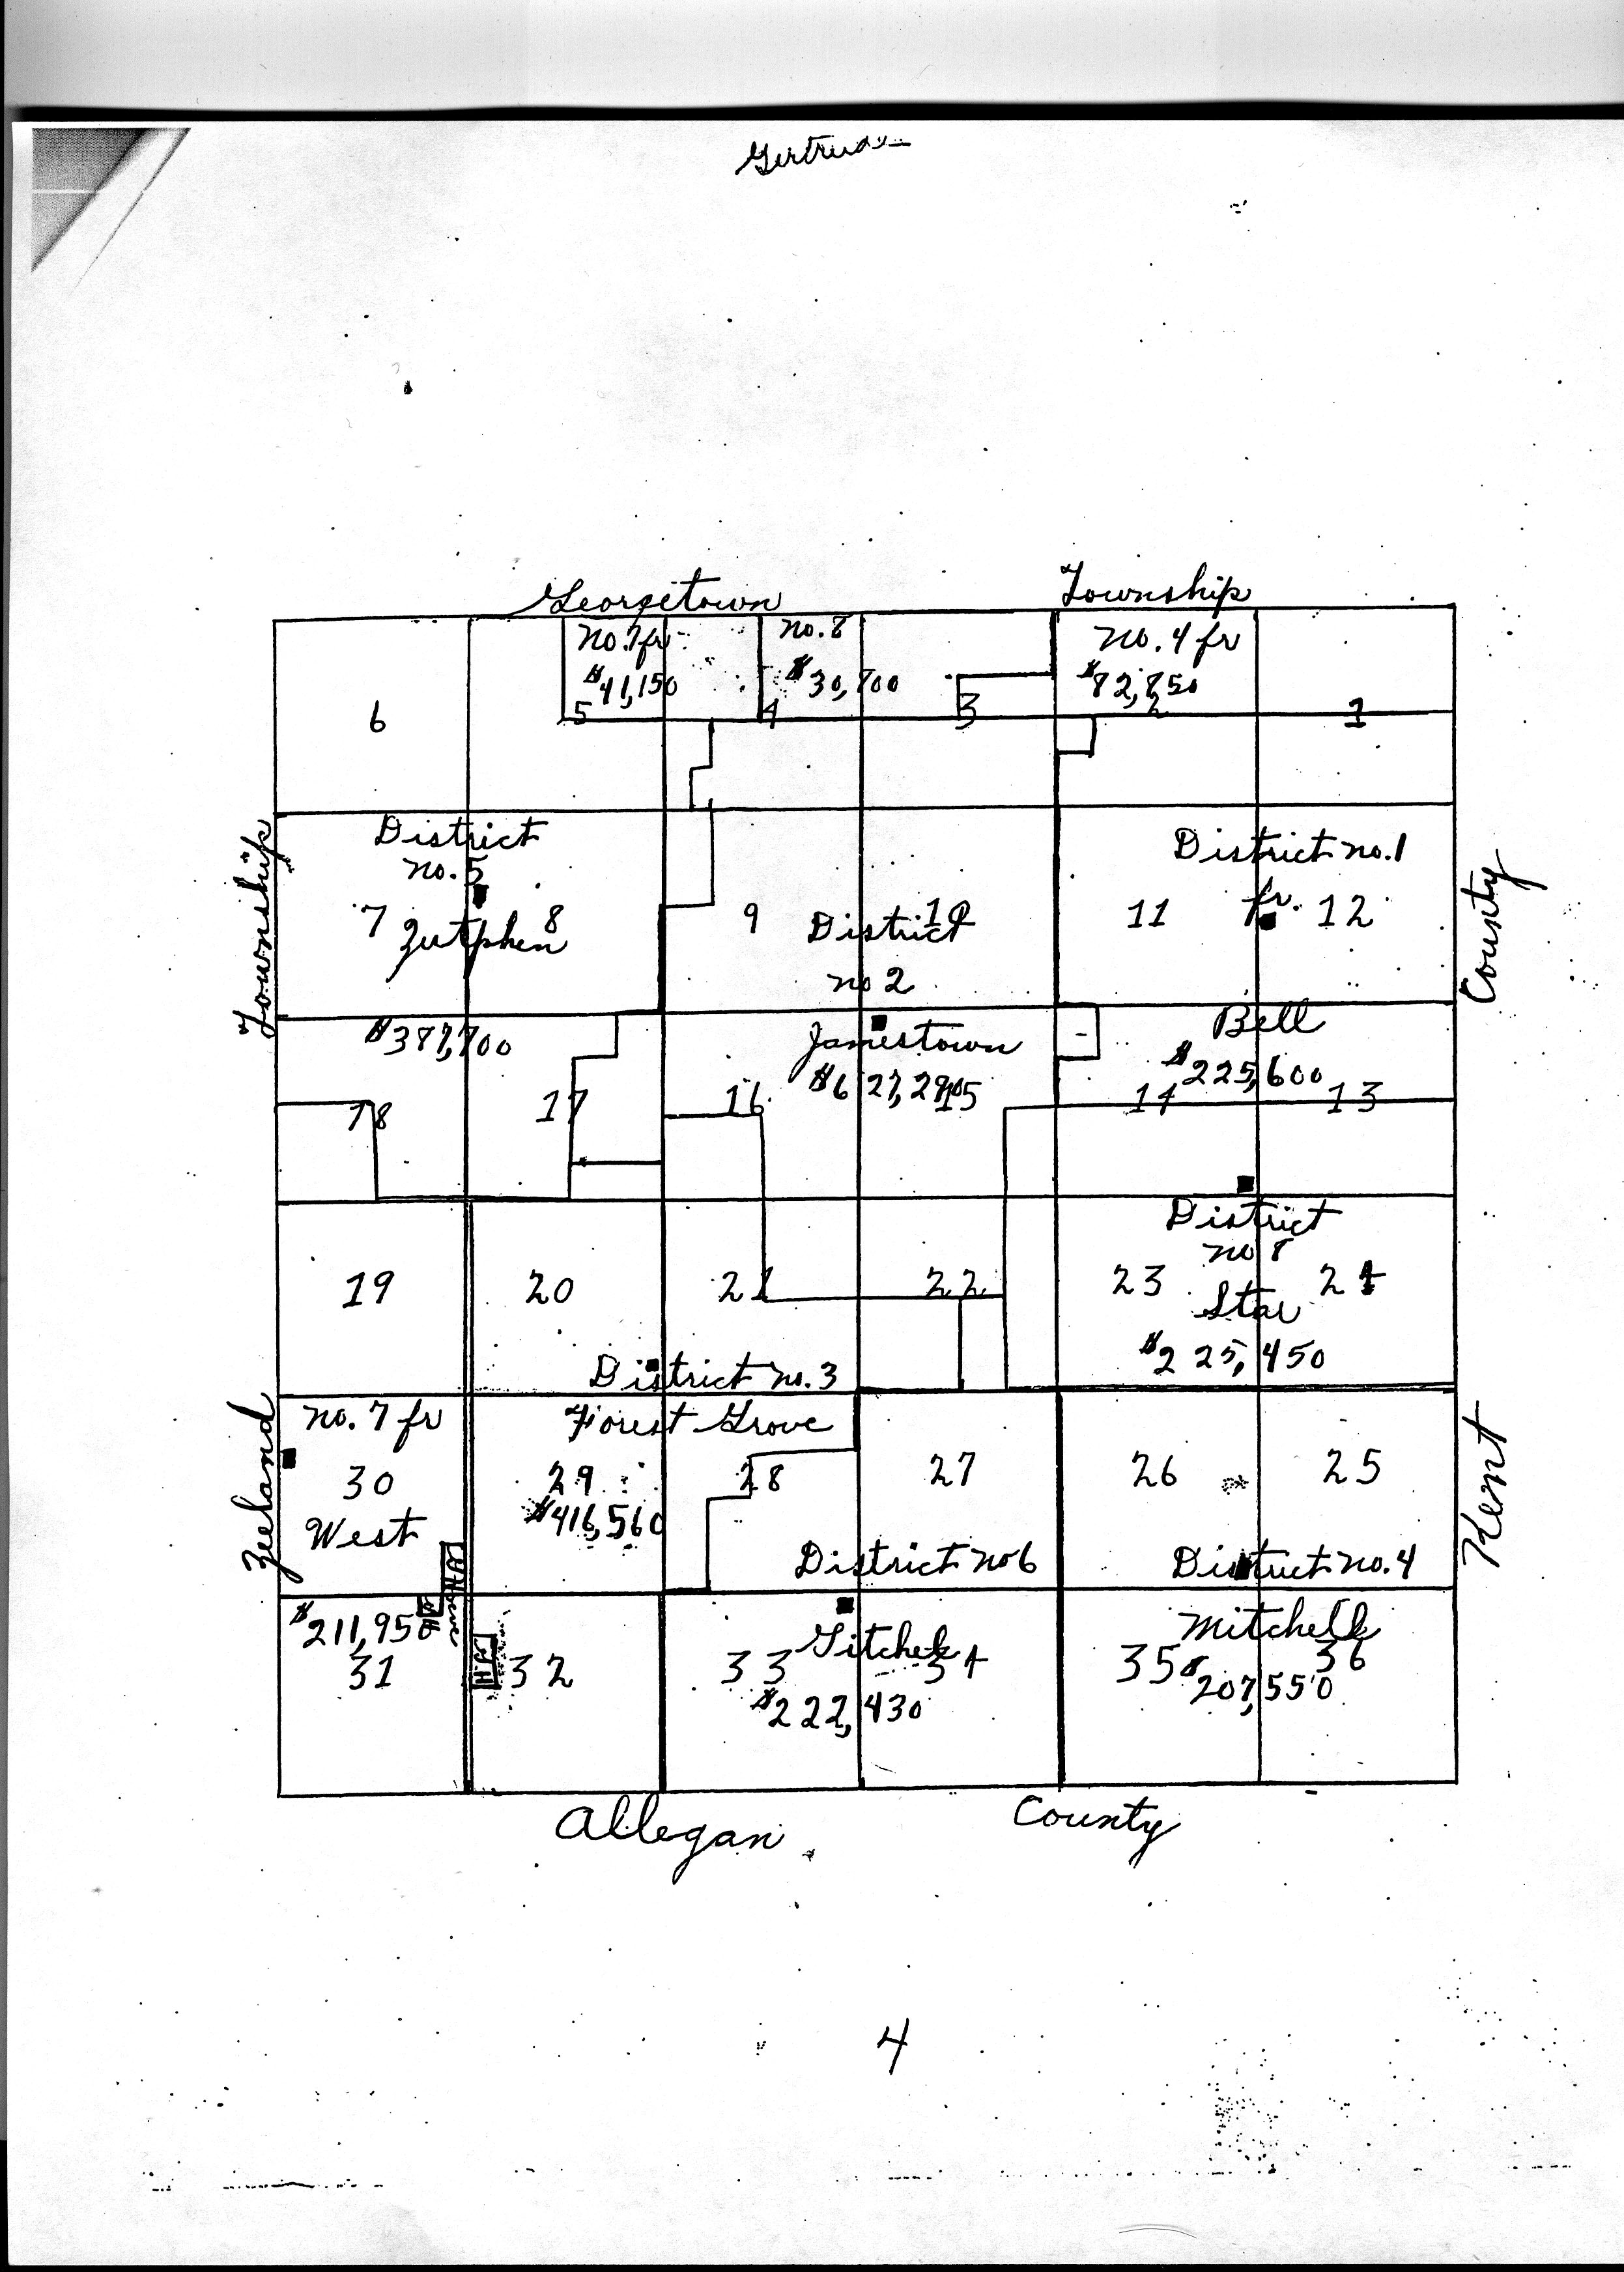 Gertrude
Georgetown Township
no. 7 fr
$41,150
no. 8
$30,800
no. 4 fr
$82,850
6
5
4
3
2
1
Township
District
no. 5
7
8
Zutphen
9
10
District
no 2
District no. 1
11
fr.
12
County
$387,700
18
17
16
Jamestown
$627,290
15
Bell
$225,600
14
13
19
20
21
22
23
24
District
no 8
Star
$225,450
District no. 3
Zeeland
no. 7 fr
30
West
Forest Grove
29
$416,560
28
27
26
25
Kent
District no 6
District no. 4
$211,950
31
32
33
Gitchel
34
$222,430
Mitchell
35
36
$207,550
Allegan County
4